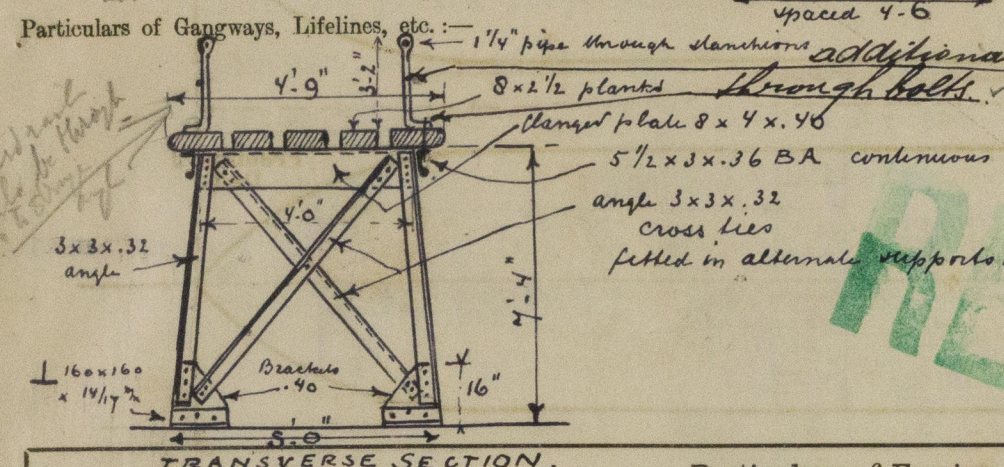 spaced 4-6
Particulars of Gangways, Lifelines, etc. :—
1 1/4" pipe through stanchions
additiona
through bolts.
4'-9"
3'-2"
8 x 2 1/2 planks
flanged plate 8 x 4 x .40
5 1/2 x 3 x .36 BA continuous
angle 3 x 3 x .32
cross ties
fitted in alternate supports
4'-0"
3 x 3 x .32
angle
7'-4"
⊥ 160 x 160
x 14/17 m/m
Brackets
.40
16"
5'-0"
TRANSVERSE SECTION.
RE